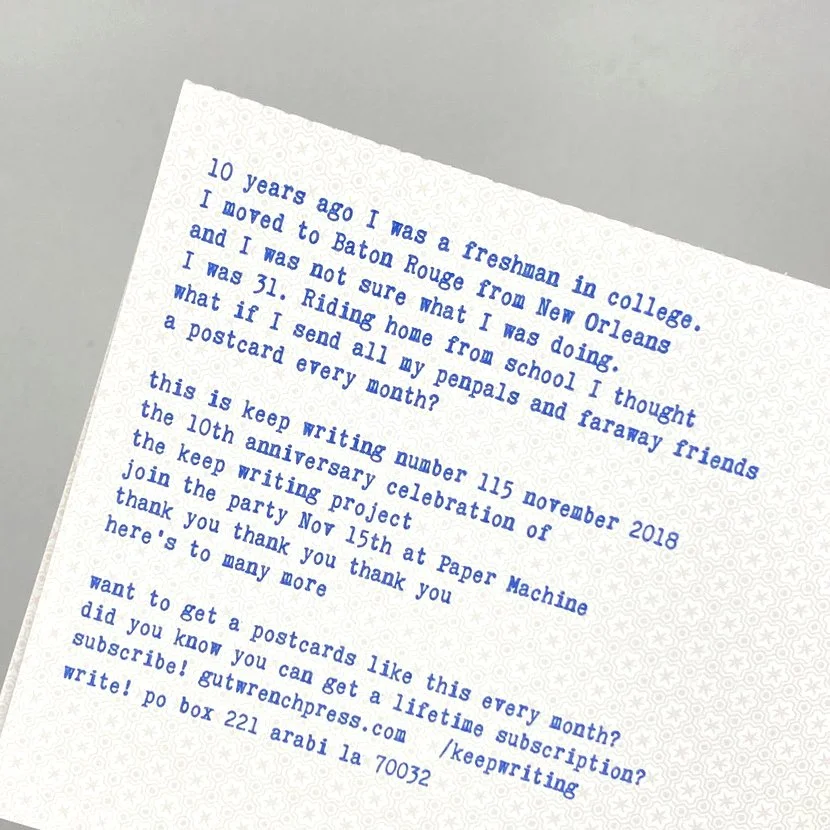 10 years ago I was a freshman in college.
I moved to Baton Rouge from New Orleans
and I was not sure what I was doing.
I was 31. Riding home from school I thought
what if I send all my penpals and faraway friends
a postcard every month?
this is keep writing number 115 november 2018
the 10th anniversary celebration of
the keep writing project
join the party Nov 15th at Paper Machine
thank you thank you thank you
here's to many more
want to get a postcards like this every month?
did you know you can get a lifetime subscription?
subscribe! gutwrenchpress.com /keepwriting
write! po box 221 arabi la 70032